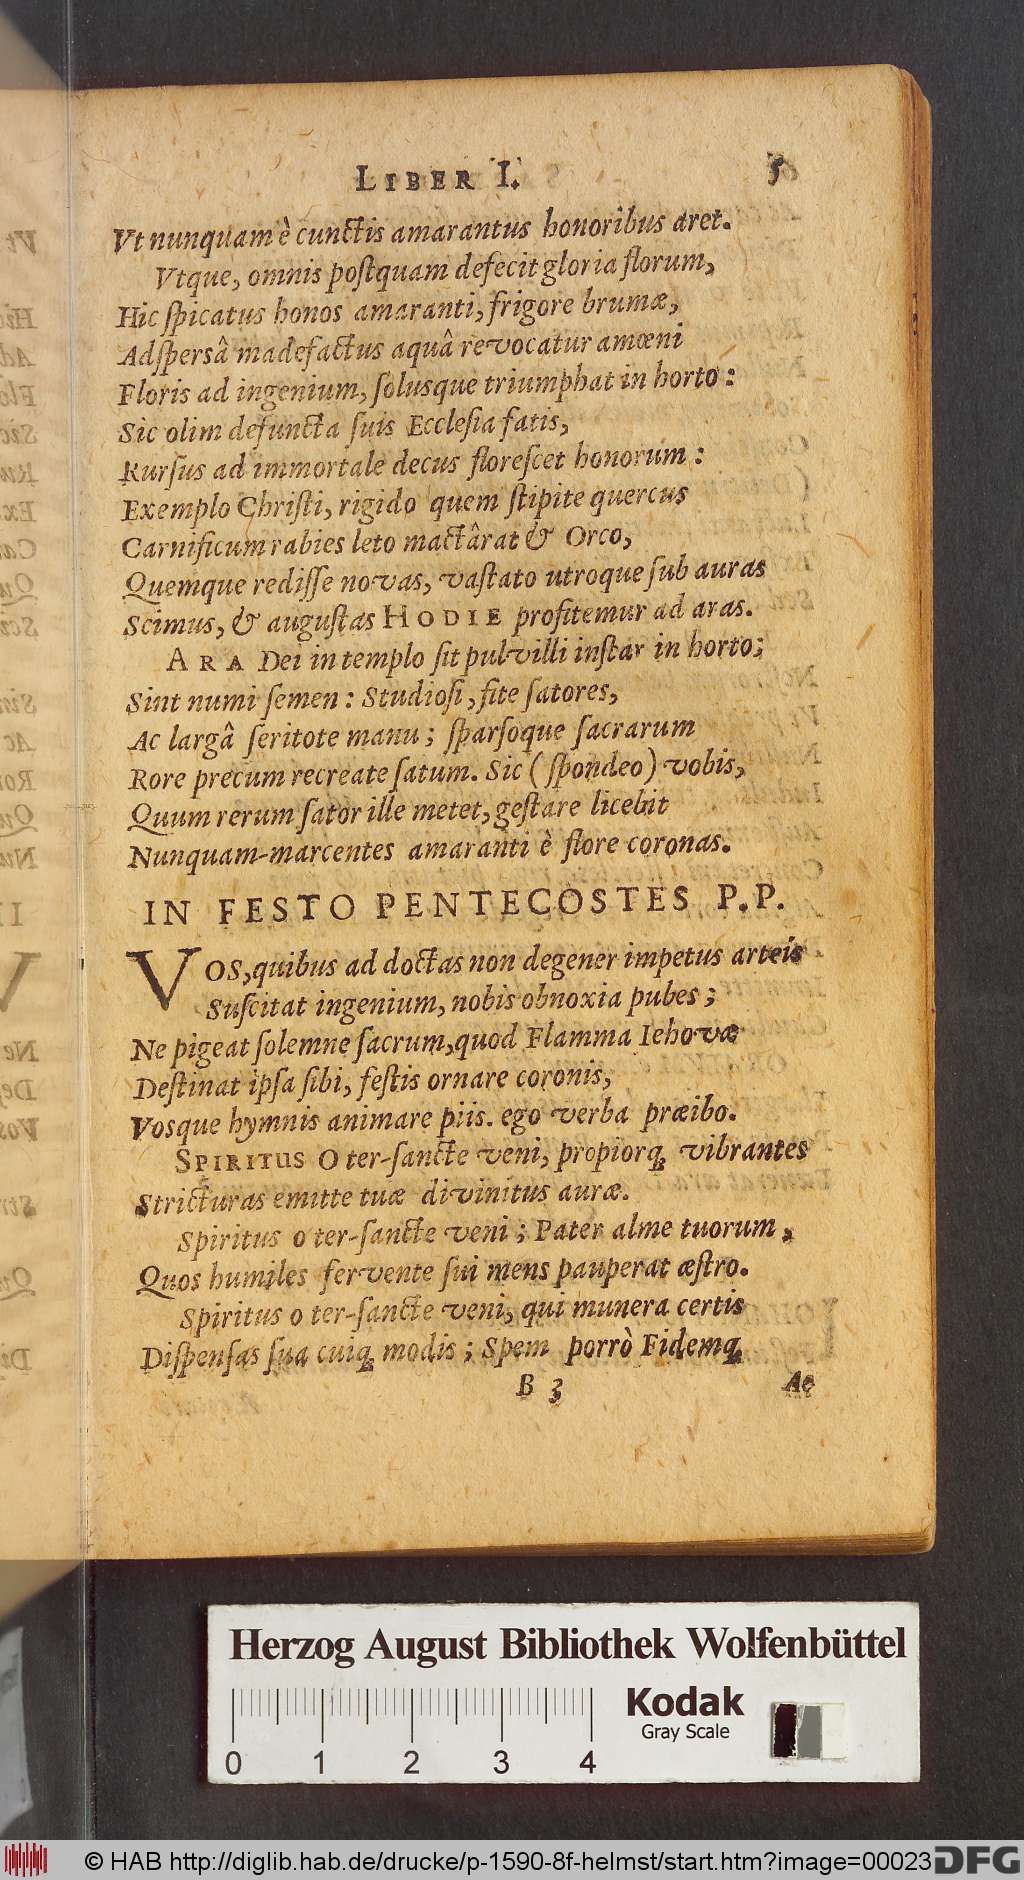 LIBER I. 5
Vt nunquam è cunctis amarantus honoribus aret.
Vtque, omnis postquam defecit gloria florum,
Hic spicatus honos amaranti, frigore brumæ,
Adspersâ madefactus aquâ revocatur amœni
Floris ad ingenium, solusque triumphat in horto:
Sic olim defuncta suis Ecclesia fatis,
Rursus ad immortale decus florescet honorum:
Exemplo Christi, rigido quem stipite quercus
Carnificum rabies leto mactârat & Orco,
Quemque redisse novas, vastato utroque sub auras
Scimus, & augustas HODIE profitemur ad aras.
ARA Dei in templo sit pulvilli instar in horto;
Sint numi semen: Studiosi, site satores,
Ac largâ seritote manu; sparsoque sacrarum
Rore precum recreate satum. Sic (spondeo) vobis,
Quum rerum sator ille metet, gestare licebit
Nunquam-marcentes amaranti è flore coronas.
IN FESTO PENTECOSTES P.P.
VOS, quibus ad doctas non degener impetus arteis
Suscitat ingenium, nobis obnoxia pubes;
Ne pigeat solemne sacrum, quod Flamma Iehovæ
Destinat ipsa sibi, festis ornare coronis,
Vosque hymnis animare piis. ego verba præibo.
SPIRITUS O ter-sancte veni, propiorq; vibrantes
Stricturas emitte tuæ divinitus auræ.
Spiritus o ter-sancte veni; Pater alme tuorum,
Quos humiles fervente sui mens pauperat æstro.
Spiritus o ter-sancte veni, qui munera certis
Dispensas sua cuiq; modis; Spem porrò Fidemq;
B 3 Ac
Herzog August Bibliothek Wolfenbüttel
Kodak
Gray Scale
0 1 2 3 4
© HAB http://diglib.hab.de/drucke/p-1590-8f-helmst/start.htm?image=00023
DFG